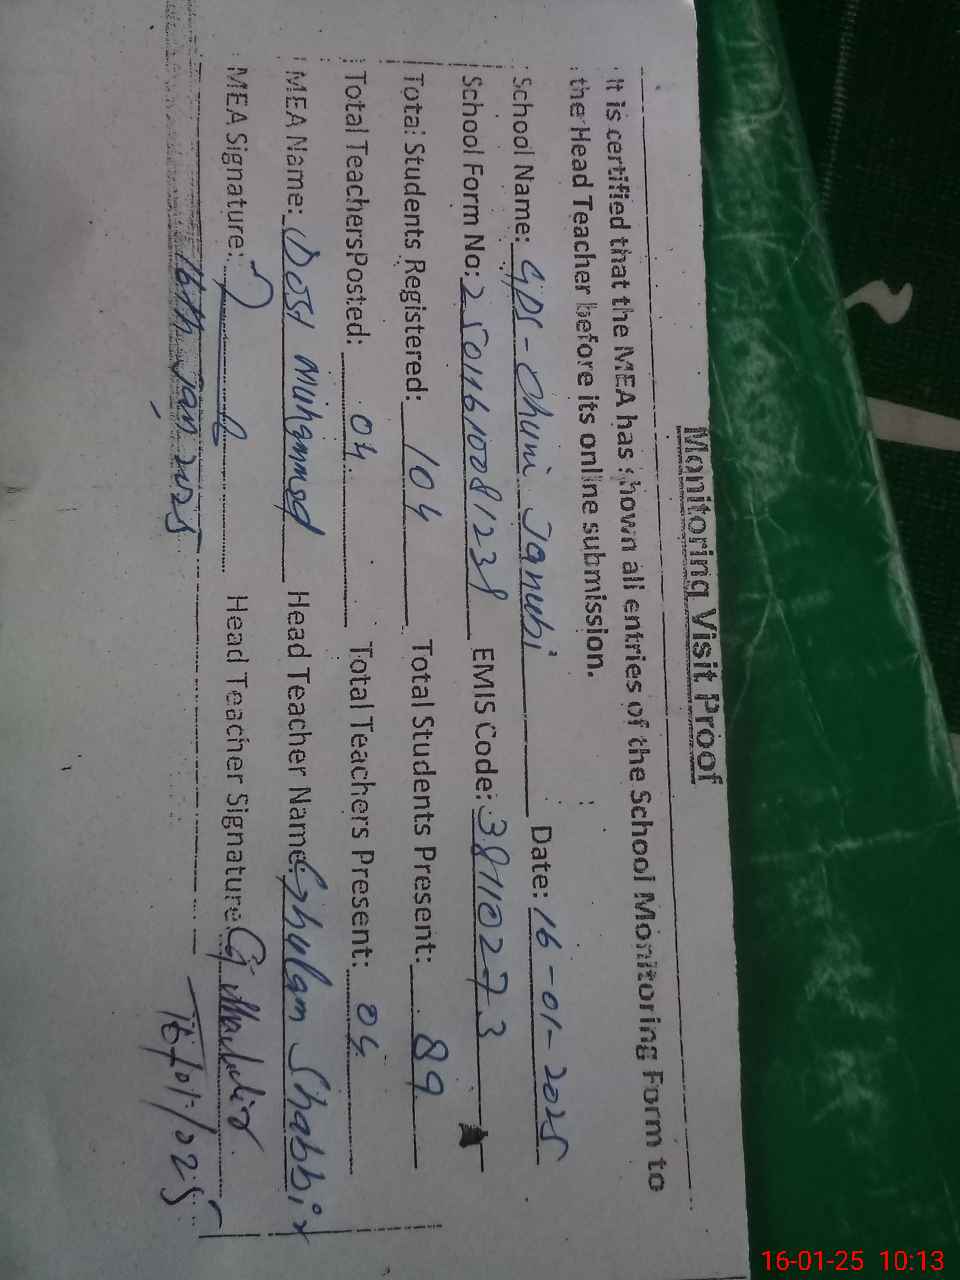 Monitoring Visit Proof
It is certified that the MEA has shown all entries of the School Monitoring Form to
the Head Teacher before its online submission.
School Name: GPS - Dhuni Janubi Date: 16-01-2025
School Form No: 25011610081238 EMIS Code: 38110273
Total Students Registered: 104 Total Students Present: 89
Total TeachersPosted: 04 Total Teachers Present: 04
MEA Name: Dost Muhammed Head Teacher Name: Ghulam Shabbir
MEA Signature: Head Teacher Signature:
16th Jan 2025 16/01/2025
16-01-25 10:13